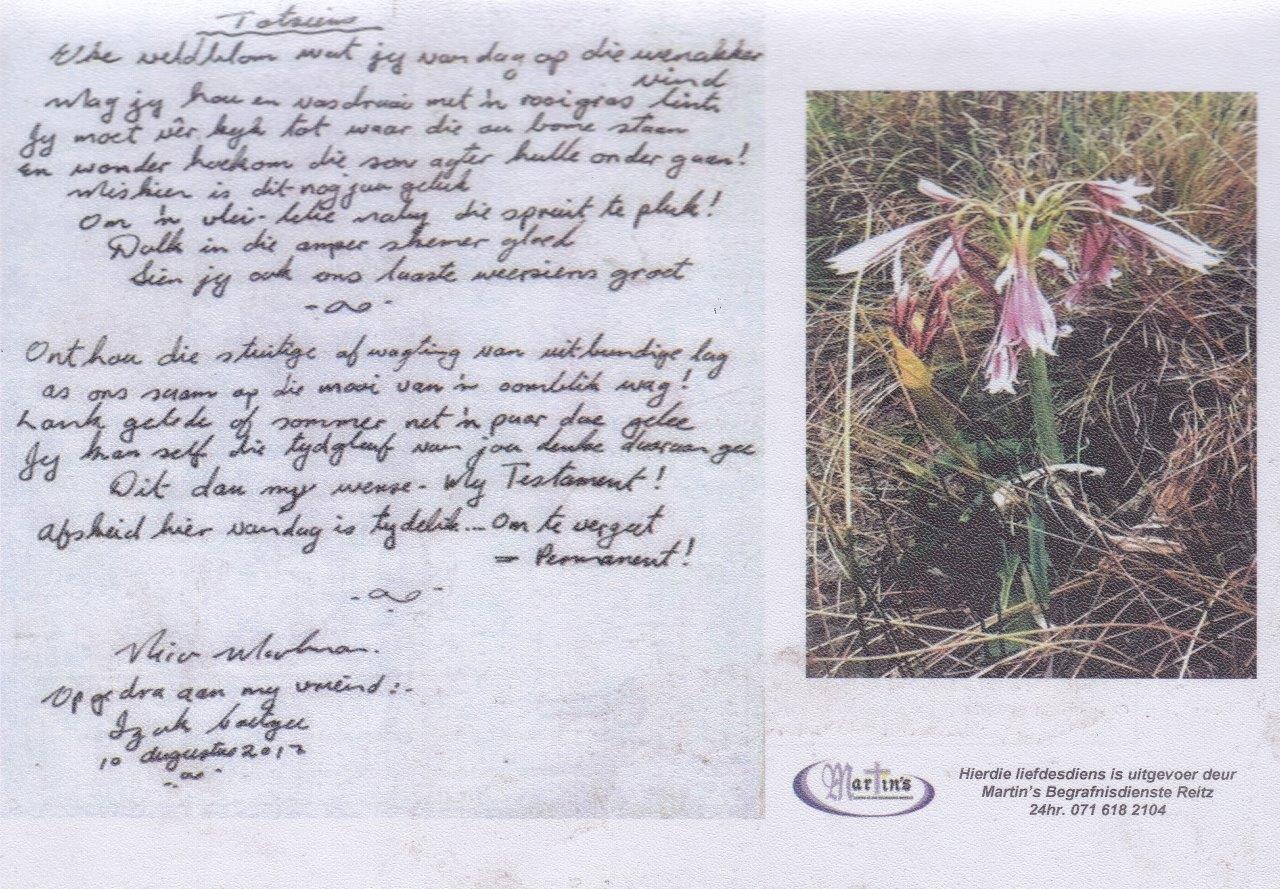 Totsiens
Elke veldblom wat jy vandag op die wenakker
vind
Mag jy hou en vasdraai met 'n rooigras lint
Jy moet vêr kyk tot waar die ou bome staan
En wonder hoekom die son agter hulle onder gaan!
Miskien is dit nog jou geluk
Om 'n vlei-lelie naby die spruit te pluk!
Dalk in die amper skemer gloed
Sien jy ook ons laaste weersiens groet
Onthou die stuitige afwagting van uitbundige lag
as ons saam op die mooi van 'n oomblik wag!
Lank gelede of sommer net 'n paar dae gelee
Jy kan self die tydgleuf van jou denke daaraan gee
Dit dan my wense - My Testament!
Afskeid hier vandag is tydelik... Om te vergeet
= Permanent!
Opgedra aan my vriend:-
Izak Coetzee
10 Augustus 2012
Martin's
Hierdie liefdesdiens is uitgevoer deur
Martin's Begrafnisdienste Reitz
24hr. 071 618 2104